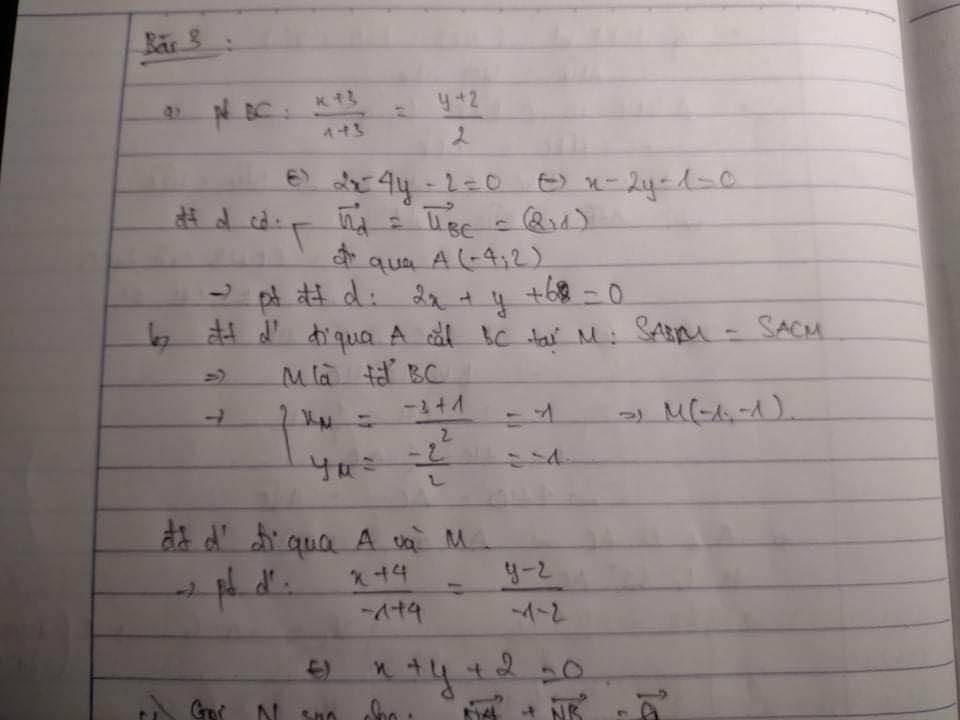 Bài 3 :
a) pt BC : \frac{x+3}{1+3} = \frac{y+2}{2}
⇔ 2x-4y-2=0 ⇔ x-2y-1=0
đt d có: \vec{n}_d = \vec{u}_{BC} = (2;1)
đi qua A(-4;2)
→ pt đt d: 2x + y + 6 = 0
b) đt d' đi qua A cắt BC tại M : SABM = SACM
⇒ M là tđ BC
→ { x_M = \frac{-3+1}{2} = -1 ⇒ M(-1;-1).
y_M = \frac{-2}{2} = -1.
đt d' đi qua A và M.
→ pt d': \frac{x+4}{-1+4} = \frac{y-2}{-1-2}
⇔ x+y+2=0
c) Gọi N sao cho: \vec{NA} + \vec{NB} = \vec{0}